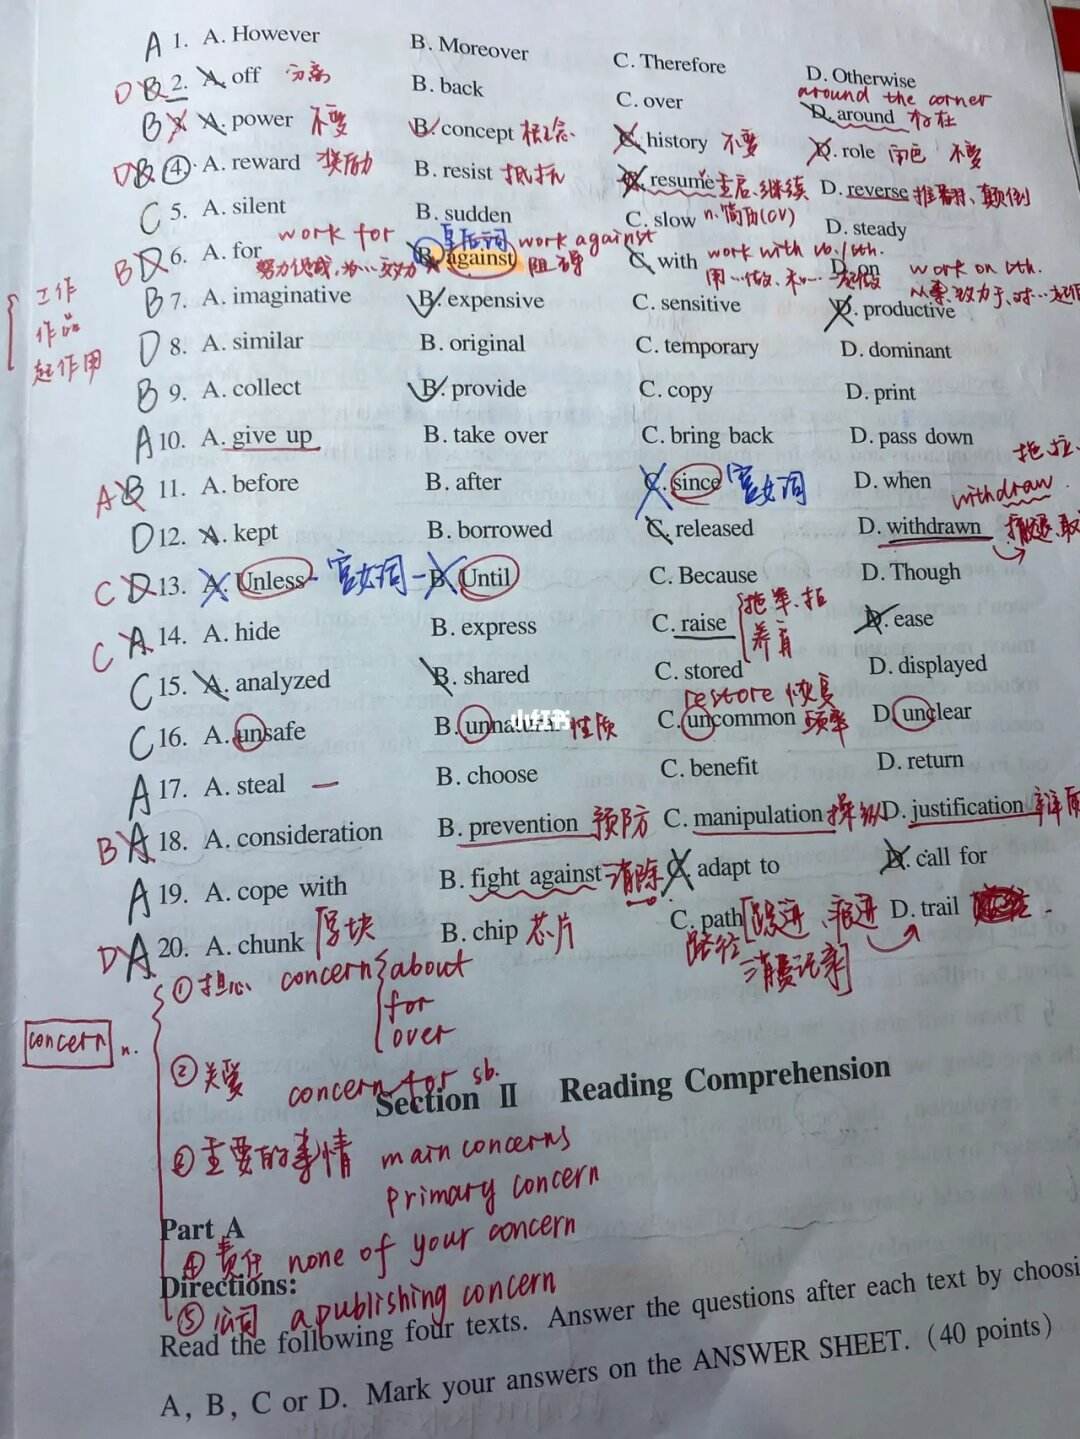 A 1. A. However B. Moreover C. Therefore D. Otherwise
D B 2. A. off 分离 B. back C. over D. around 存在
around the corner
B 3. A. power 不变 B. concept 概念 C. history 不变 D. role 角色 不变
D B ④. A. reward 奖励 B. resist 抵抗 C. resume 重启、继续 D. reverse 推翻、颠倒
C 5. A. silent B. sudden C. slow n.简历(CV) D. steady
B D 6. A. for work for B. against work against C. with work with sb./sth. D. on work on sth.
努力促成,为…效力 皇后词 阻碍
B 7. A. imaginative B. expensive C. sensitive D. productive
工作
作品
起作用
D 8. A. similar B. original C. temporary D. dominant
B 9. A. collect B. provide C. copy D. print
A 10. A. give up B. take over C. bring back D. pass down
A B 11. A. before B. after C. since 宫女词 D. when
withdraw.
D 12. A. kept B. borrowed C. released D. withdrawn
C D 13. A. Unless - 宫女词 - B. Until C. Because D. Though
C A 14. A. hide B. express C. raise 养育 D. ease
C 15. A. analyzed B. shared C. stored D. displayed
restore 恢复
C 16. A. unsafe B. unnatural 性质 C. uncommon 频率 D. unclear
小红书
A 17. A. steal B. choose C. benefit D. return
B A 18. A. consideration B. prevention 预防 C. manipulation 操纵 D. justification
A 19. A. cope with B. fight against 消除 C. adapt to D. call for
D A 20. A. chunk 厚块 B. chip 芯片 C. path 路径 D. trail
concern n.
①担心 concern about
for
over
②关爱 concern for sb.
Section Ⅱ Reading Comprehension
③重要的事情 main concerns
primary concern
Part A
④责任 none of your concern
Directions:
⑤公司 a publishing concern
Read the following four texts. Answer the questions after each text by choosi
A, B, C or D. Mark your answers on the ANSWER SHEET. (40 points)